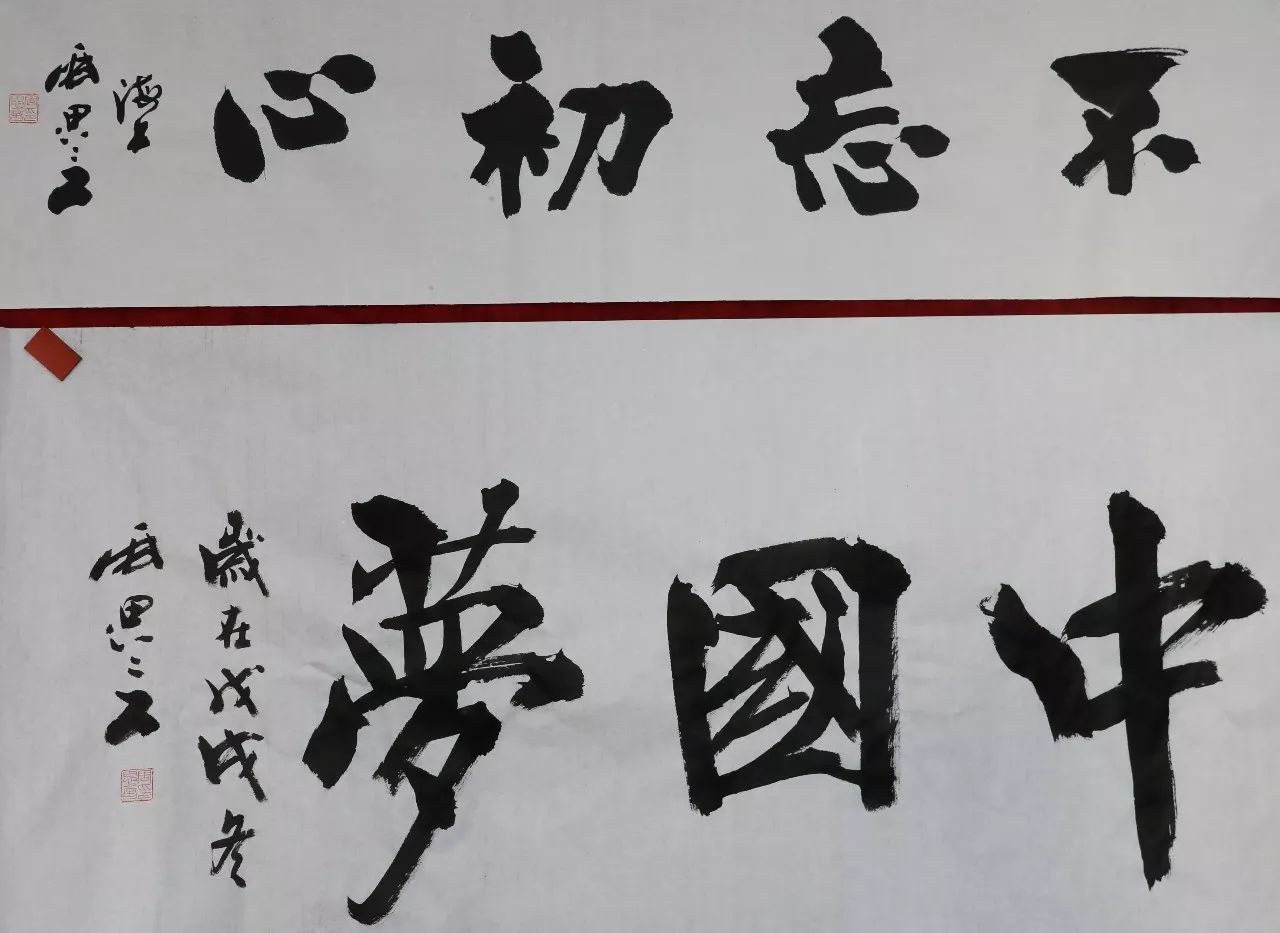 不忘初心
海上
中國夢
歲在戊戌冬